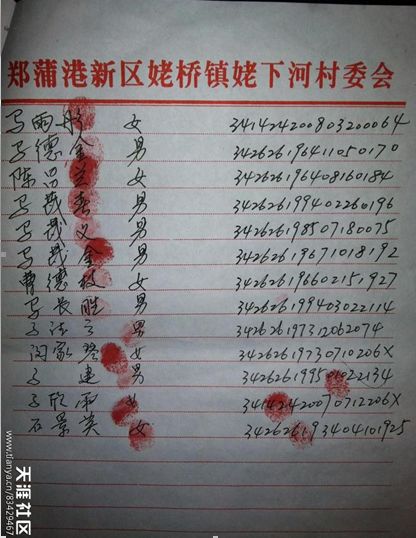 郑蒲港新区姥桥镇姥下河村委会
马雨彤 女 341424200803200064
马德金 男 342626196411050170
陈昌兰 女 342626196408160184
男 342626199402260196
男 342626198507180075
男 342626196710181​92
曹德枝 女 342626196602151927
马长胜 男 342626199403022114
男 342626197312062074
闵家琴 女 34262619730710206X
马建 男 342626199501022134
女 34142420070712206X
石景英 女 342626193404101925
天涯社区
www.tianya.cn/83429467